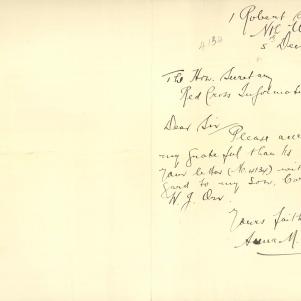 1 Robert
4134
5th Dec
The Hon. Secretary
Red Cross Informat
Dear Sir
Please acce
my grateful thanks
your letter (No 4134) wit
gard to my Son, Cor
W. J. Orr.
Yours faith
Anna M.